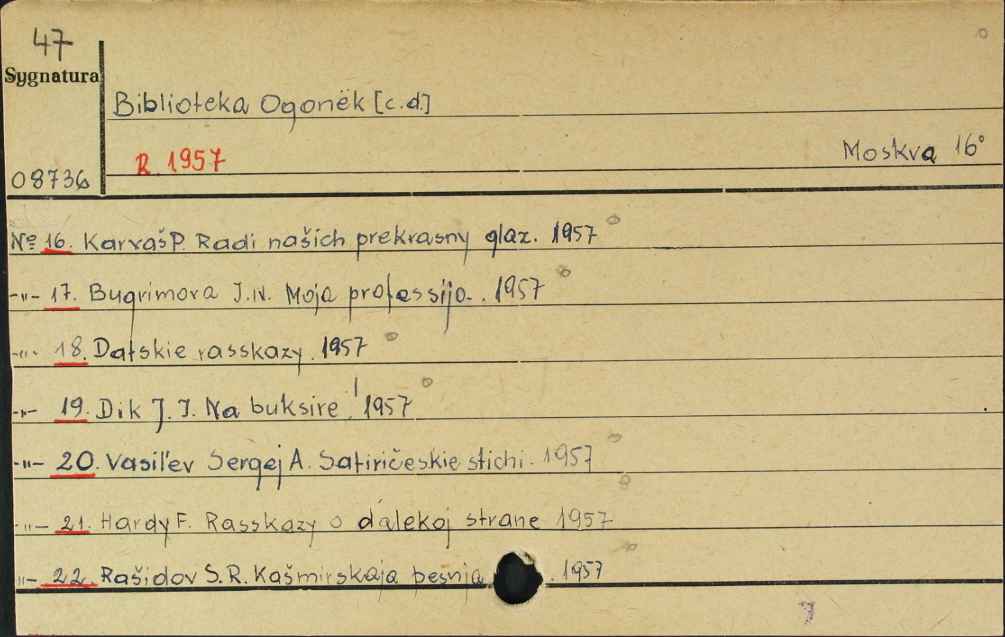 47
Sygnatura
Biblioteka Ogonëk [c.d.]
R. 1957
Moskva 16°
08736
№ 16. Karvaš P. Radi našich prekrasny glaz. 1957
-"- 17. Bugrimova J.N. Moja professija. 1957
-"- 18. Datskie rasskazy. 1957
-"- 19. Dik J. J. Na buksire 1957
-"- 20. Vasil'ev Sergej A. Satiričeskie stichi. 1957
-"- 21. Hardy F. Rasskazy o dalekoj strane 1957
-"- 22. Rašidov S.R. Kašmirskaja pesnja. 1957